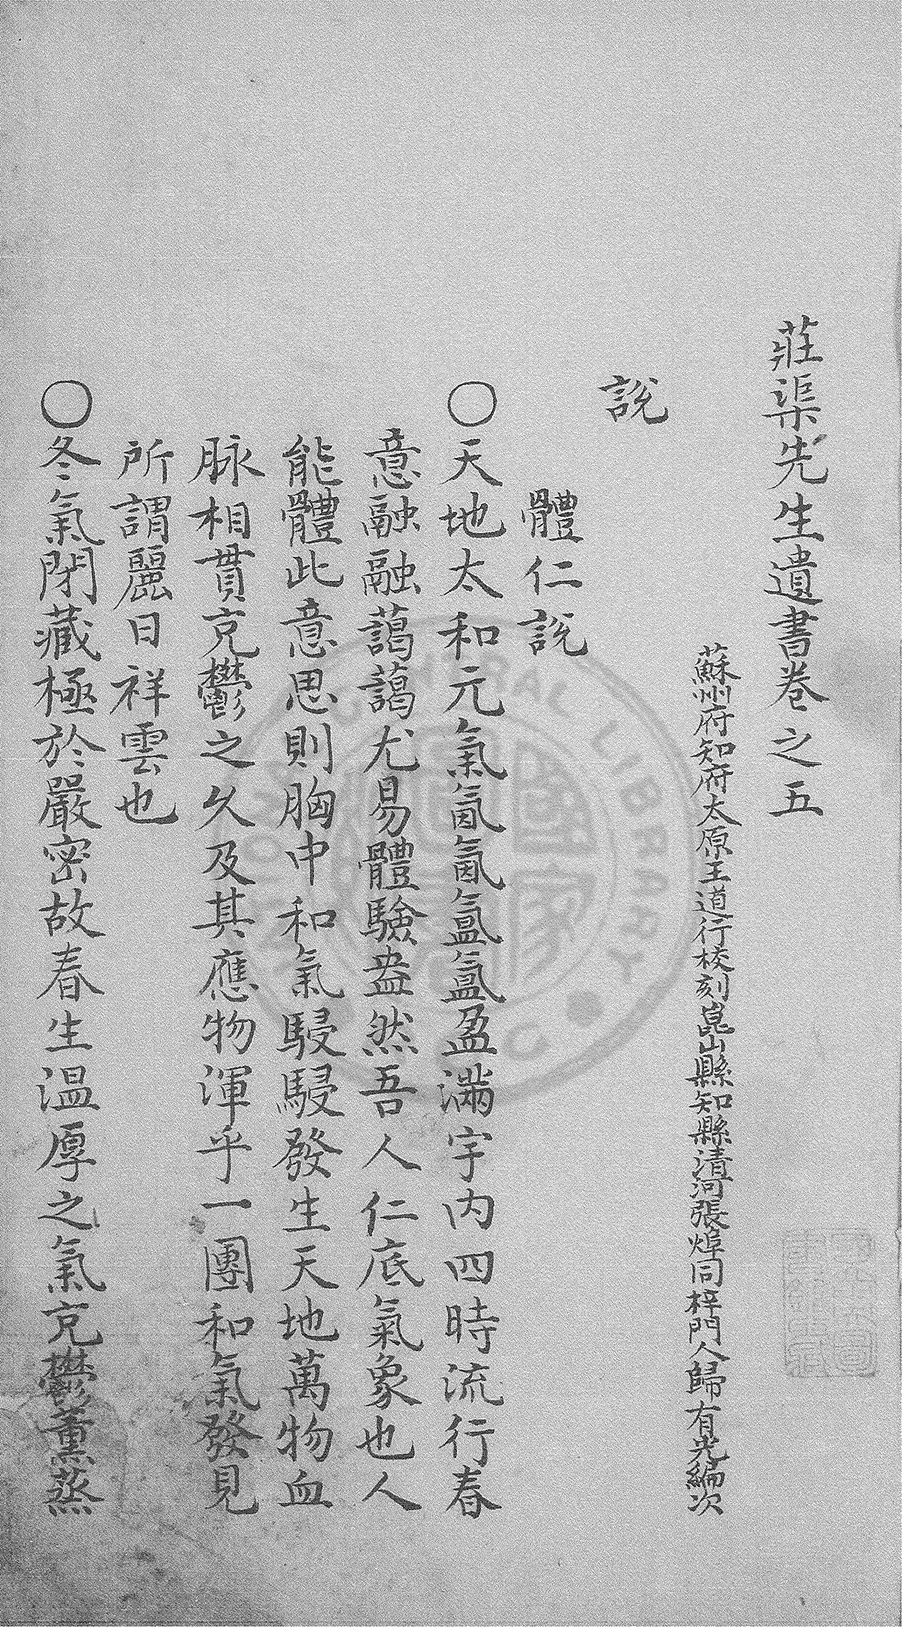 莊渠先生遺書卷之五
蘇州府知府太原王道行校刻崑山縣知縣清河張煒同梓門人歸有光編次
說
體仁說
○天地太和元氣氤氤氳氳盈滿宇內四時流行春
意融融藹藹尤易體驗盎然吾人仁底氣象也人
能體此意思則胸中和氣駸駸發生天地萬物血
脉相貫充鬱之久及其應物渾乎一團和氣發見
所謂麗日祥雲也
○冬氣閉藏極於嚴密故春生溫厚之氣充鬱薰蒸
NATIONAL CENTRAL LIBRARY